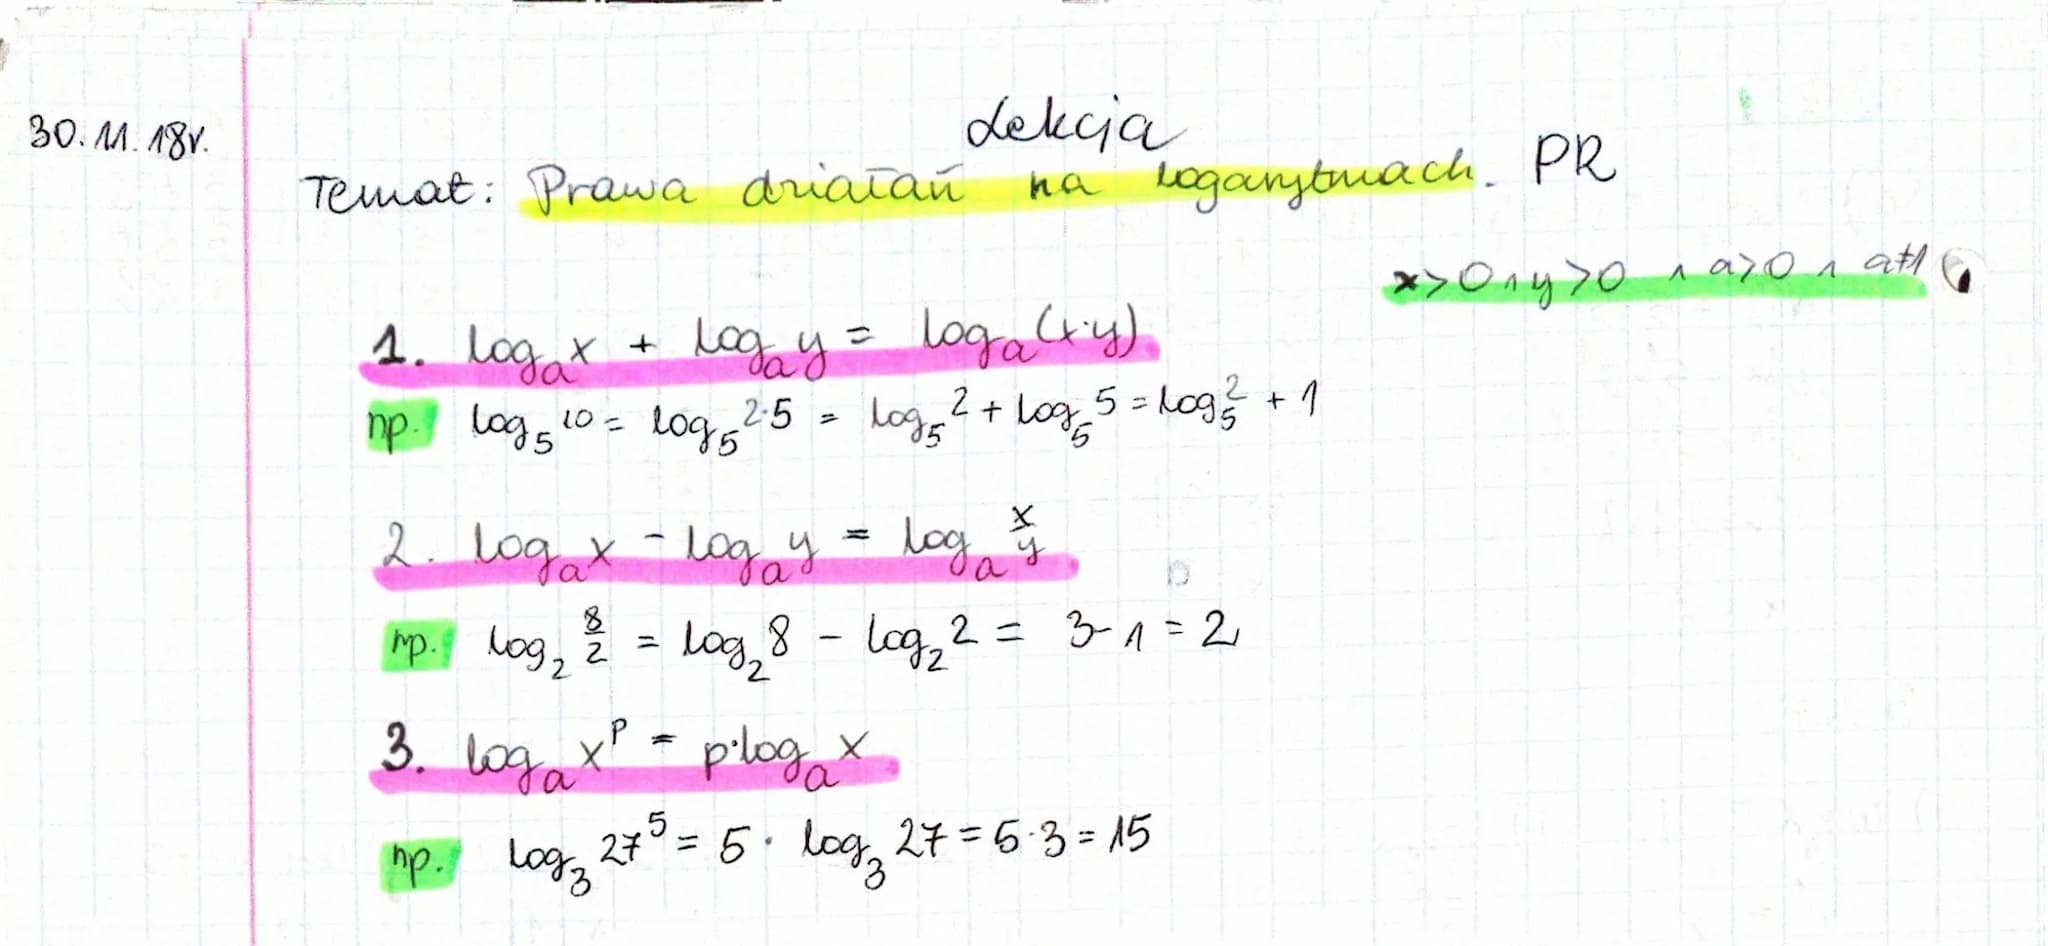 Lekcja
30.11.18r.
Temat: Prawa działań na logarytmach. PR
x>0 ∧ y>0 ∧ a>0 ∧ a≠1
1. logₐx + logₐy = logₐ(x·y)
np. log₅10 = log₅2·5 = log₅2 + log₅5 = log₅2 + 1
2. logₐx - logₐy = logₐ x/y
np. log₂ 8/2 = log₂8 - log₂2 = 3-1 = 2
3. logₐxᵖ = p·logₐx
np. log₃27⁵ = 5 · log₃27 = 5·3 = 15